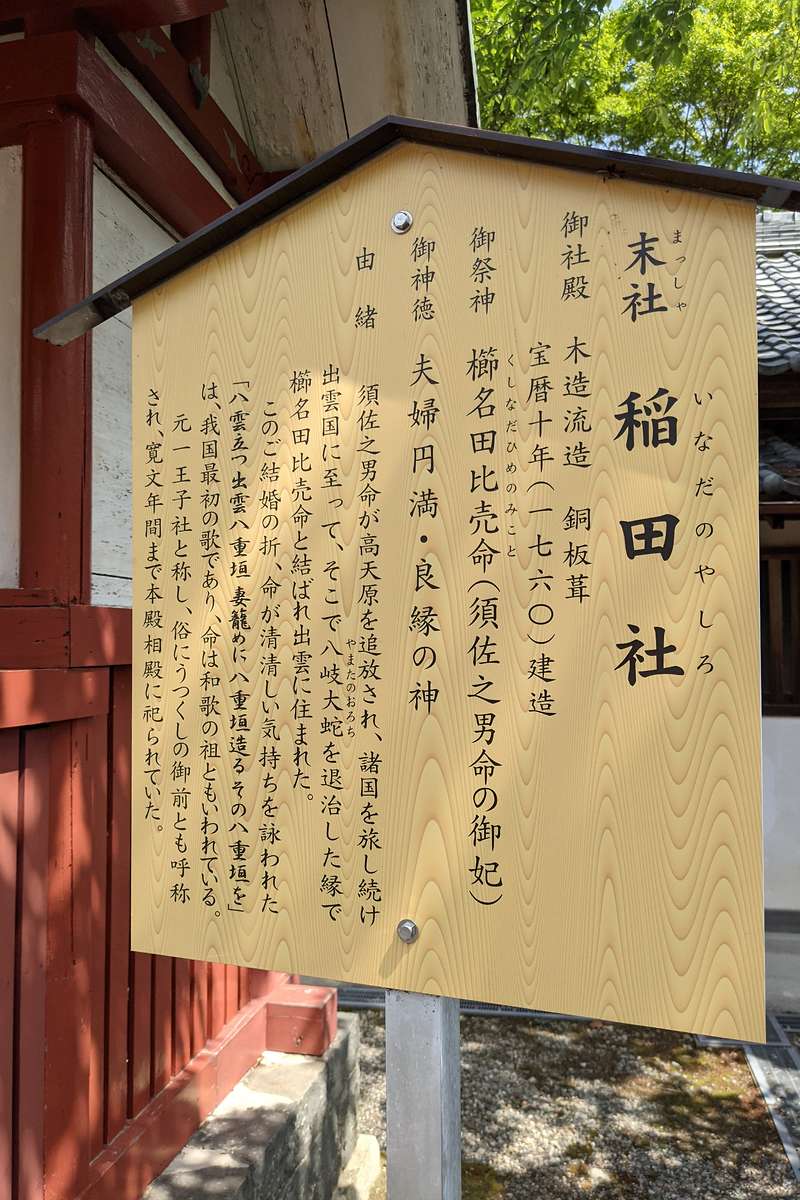 まっしゃ
末社
いなだのやしろ
稲田社
御社殿 木造流造 銅板葺
宝暦十年(一七六〇)建造
くしなだひめのみこと
御祭神 櫛名田比売命(須佐之男命の御妃)
御神徳 夫婦円満・良縁の神
由緒
須佐之男命が高天原を追放され、諸国を旅し続け
やまたのおろち
出雲国に至って、そこで八岐大蛇を退治した縁で
櫛名田比売命と結ばれ出雲に住まれた。
このご結婚の折、命が清清しい気持ちを詠われた
「八雲立つ出雲八重垣 妻籠めに八重垣造る その八重垣を」
は、我国最初の歌であり、命は和歌の祖ともいわれている。
元一王子社と称し、俗にうつくしの御前とも呼称
され、寛文年間まで本殿相殿に祀られていた。